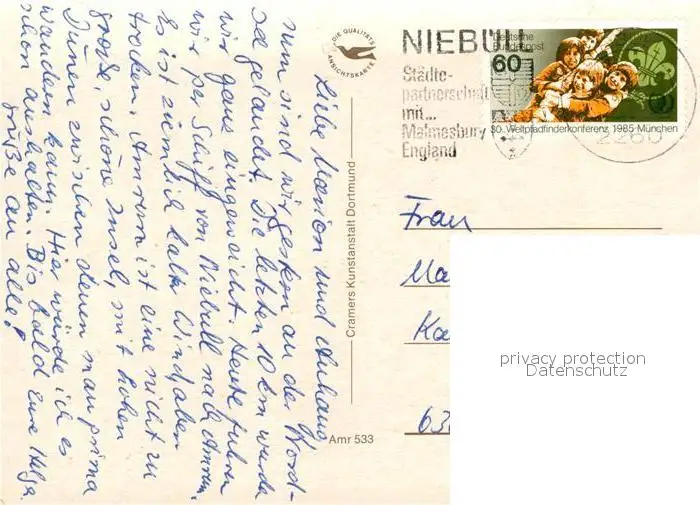 Liebe Marion und Anhang,
nun sind wir gestern an der Nord-
see gelandet. Die letzten 10 km wurden
wir ganz eingeweicht. Heute fuhren
wir per Schiff von Niebüll nach Amrum.
Es ist ziemlich kalt, Windjaben
trocken. Amrum ist eine nicht zu
große, schöne Insel, mit hohen
Dünen zwischen denen man prima
wandern kann. Hier würde ich es
schon aushalten. Bis bald Eure Helga
Grüße an alle!
DIE QUALITÄTS
ANSICHTSKARTE
Cramers Kunstanstalt Dortmund
Amr 533
NIEBÜLL
Städte-
partnerschaft
mit...
Malmesbury
England
2260
Deutsche
Bundespost
60
30. Weltpfadfinderkonferenz 1985 München
Frau
Ma
Ka
63
privacy protection
Datenschutz